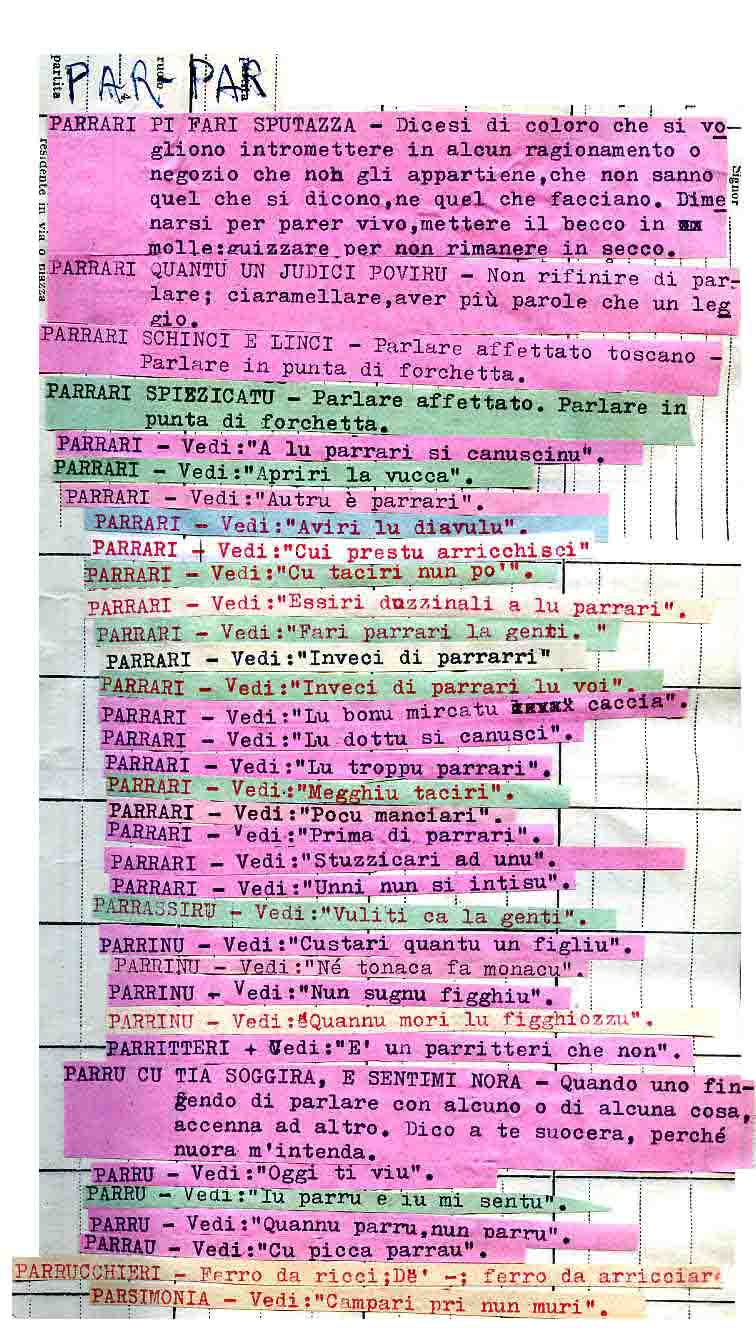 PAR-PAR
partita
ruolo
residente in via o piazza
Signor
PARRARI PI FARI SPUTAZZA - Dicesi di coloro che si vo-
gliono intromettere in alcun ragionamento o
negozio che non gli appartiene,che non sanno
quel che si dicono,ne quel che facciano. Dime
narsi per parer vivo,mettere il becco in
molle:guizzare per non rimanere in secco.
PARRARI QUANTU UN JUDICI POVIRU - Non rifinire di par-
lare; ciaramellare,aver più parole che un leg
gio.
PARRARI SCHINCI E LINCI - Parlare affettato toscano -
Parlare in punta di forchetta.
PARRARI SPIZZICATU - Parlare affettato. Parlare in
punta di forchetta.
PARRARI - Vedi:"A lu parrari si canuscinu".
PARRARI - Vedi:"Apriri la vucca".
PARRARI - Vedi:"Autru è parrari".
PARRARI - Vedi:"Aviri lu diavulu".
PARRARI - Vedi:"Cui prestu arricchisci"
PARRARI - Vedi:"Cu taciri nun po'".
PARRARI - Vedi:"Essiri duzzinali a lu parrari".
PARRARI - Vedi:"Fari parrari la genti. "
PARRARI - Vedi:"Inveci di parrarri"
PARRARI - Vedi:"Inveci di parrari lu voi".
PARRARI - Vedi:"Lu bonu mircatu caccia".
PARRARI - Vedi:"Lu dottu si canusci".
PARRARI - Vedi:"Lu troppu parrari".
PARRARI - Vedi:"Megghiu taciri".
PARRARI - Vedi:"Pocu manciari".
PARRARI - Vedi:"Prima di parrari".
PARRARI - Vedi:"Stuzzicari ad unu".
PARRARI - Vedi:"Unni nun si intisu".
PARRASSIRU - Vedi:"Vuliti ca la genti".
PARRINU - Vedi:"Custari quantu un figliu".
PARRINU - Vedi:"Né tonaca fa monacu".
PARRINU - Vedi:"Nun sugnu figghiu".
PARRINU - Vedi:"Quannu mori lu figghiozzu".
PARRITTERI + Vedi:"E' un parritteri che non".
PARRU CU TIA SOGGIRA, E SENTIMI NORA - Quando uno fin-
gendo di parlare con alcuno o di alcuna cosa,
accenna ad altro. Dico a te suocera, perché
nuora m'intenda.
PARRU - Vedi:"Oggi ti viu".
PARRU - Vedi:"Iu parru e iu mi sentu".
PARRU - Vedi:"Quannu parru,nun parru".
PARRAU - Vedi:"Cu picca parrau".
PARRUCCHIERI - Ferro da ricci;De' -; ferro da arricciare
PARSIMONIA - Vedi:"Campari pri nun muri".